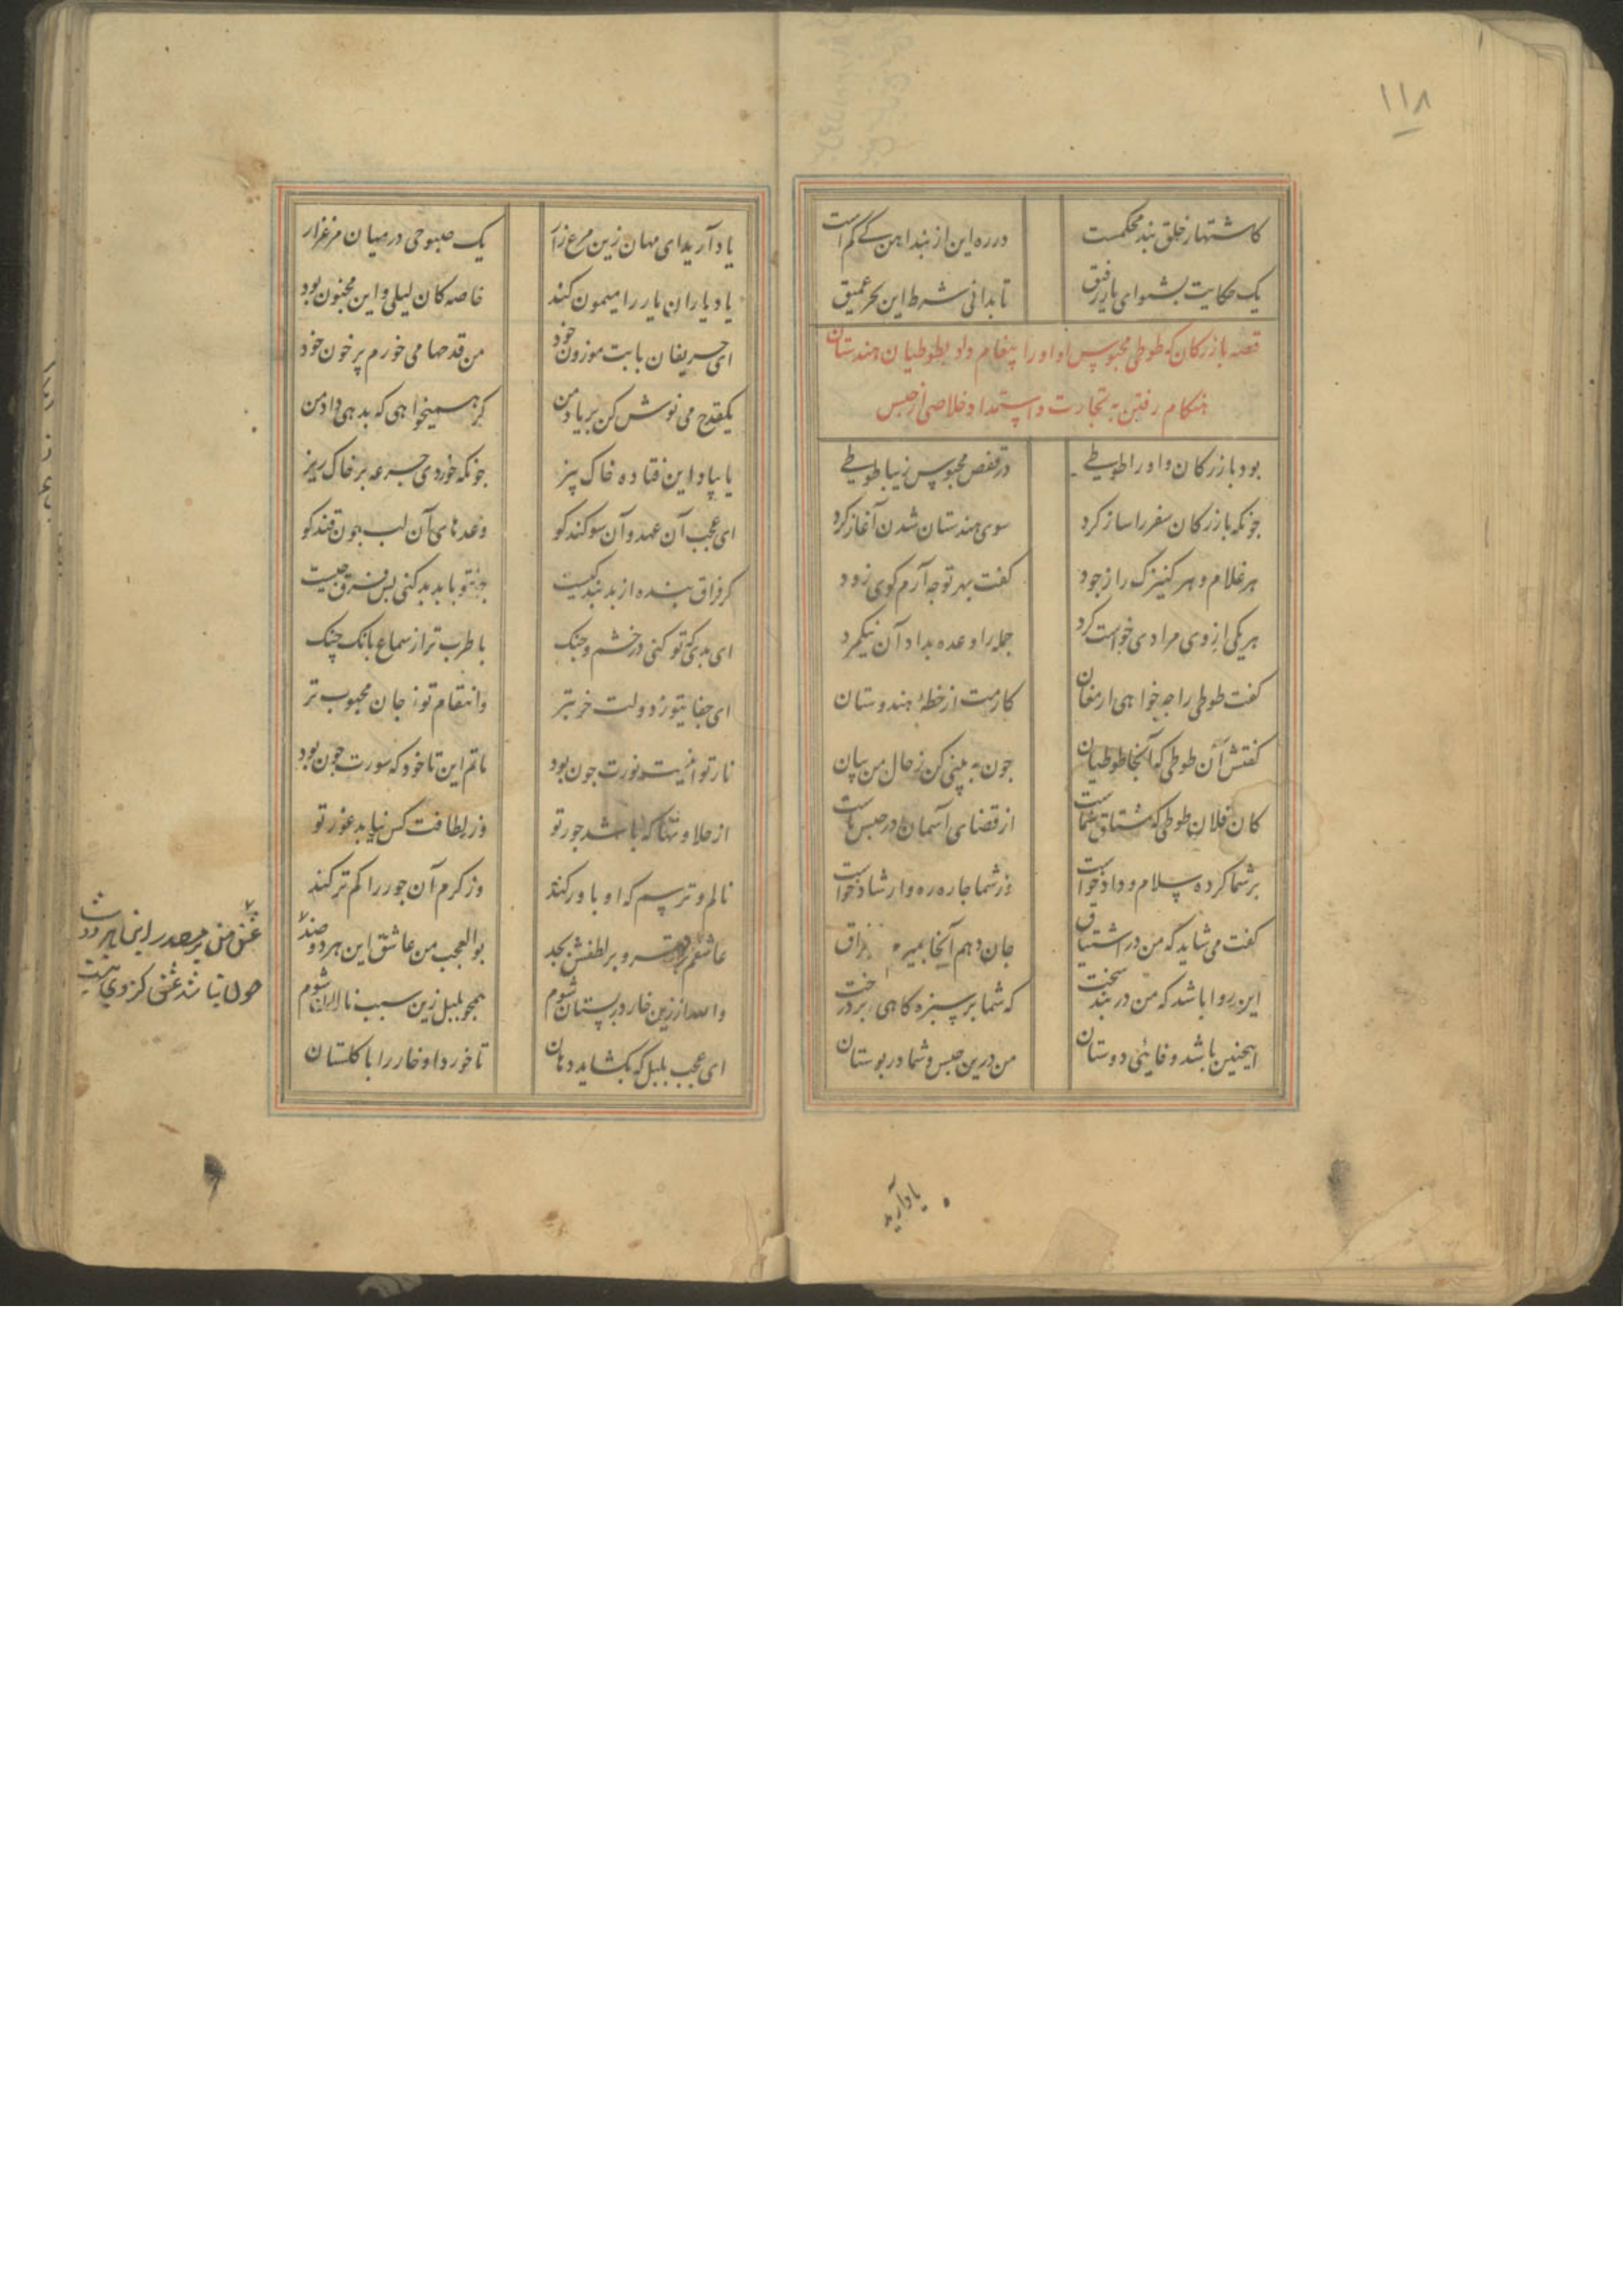 ۱۱۸
کاشتهار خلق بند محکمست در ره این از بند اهن کے کم است
یک حکایت بشنو ای یار رفیق تا بدانی شرط این بحر عمیق
قصه بازرکان که طوطی محبوس او او را پیغام داد بطوطیان هندستان
هنکام رفتن به تجارت و استمداد خلاصی از حبس
بود بازرکان و او را طوطے در قفص محبوس زیبا طوطے
جونکه بازرکان سفر را ساز کرد سوی هندستان شدن آغاز کرد
هر غلام و هر کنیزک را ز جود کفت بهر تو جه آرم کوی زود
هر یکی از وی مرادی خواست کرد جمله را وعده بداد آن نیکمرد
کفت طوطی را جه خواهی ارمغان کارمت از خطهٔ هندوستان
کفتش آن طوطی که آنجا طوطیان جون به بینی کن ز حال من بیان
کان فلان طوطی که مشتاق شماست از قضای آسمان در حبس ماست
بر شما کرده سلام و داد خواست وز شما جاره ره وارشاد خواست
کفت می شاید که من در اشتیاق جان دهم آنجا بمیرم فراق
این روا باشد که من در بند سخت که شما بر سبزه کاهی بر درخت
اینجنین باشد وفائی دوستان من درین حبس و شما در بوستان
یاد آرید
یاد آرید ای مهان زین مرغ زار یک صبوحی در میان مرغزار
یاد یاران یار را میمون کند خاصه کان لیلی و این مجنون بود
ای حریفان با بت موزون خود من قدحها می خورم پر خون خود
یکقدح می نوش کن بر یاد من کر همیخواهی که بدهی داد من
یا بیاد این فتاده خاک بیز جونکه خوردی جرعه بر خاک ریز
ای عجب آن عهد و آن سوکند کو وعدهای آن لب جون قند کو
کر فراق بنده از بد بندکیست جون تو با بد بد کنی بس فرق جیست
ای بدی که تو کنی در خشم و جنک با طرب تر از سماع بانک جنک
ای جفای تو ز دولت خوبتر و انتقام تو ز جان محبوب تر
نار تو اینست نورت جون بود ماتم این تا خود که سورت جون بود
از حلاوتها که باشد جور تو وز لطافت کس نیابد غور تو
نالم و ترسم که او باور کند وز کرم آن جور را کمتر کند
عاشقم بر قهر و بر لطفش بجد بوالعجب من عاشق این هر دو ضد
والله ار زین خار در بستان شوم همجو بلبل زین سبب نالان شوم
ای عجب بلبل که بکشاید دهان تا خورد او خار را با کلستان
عشق من بر مصدر این هر دو
جون نباشد عشق کز وی